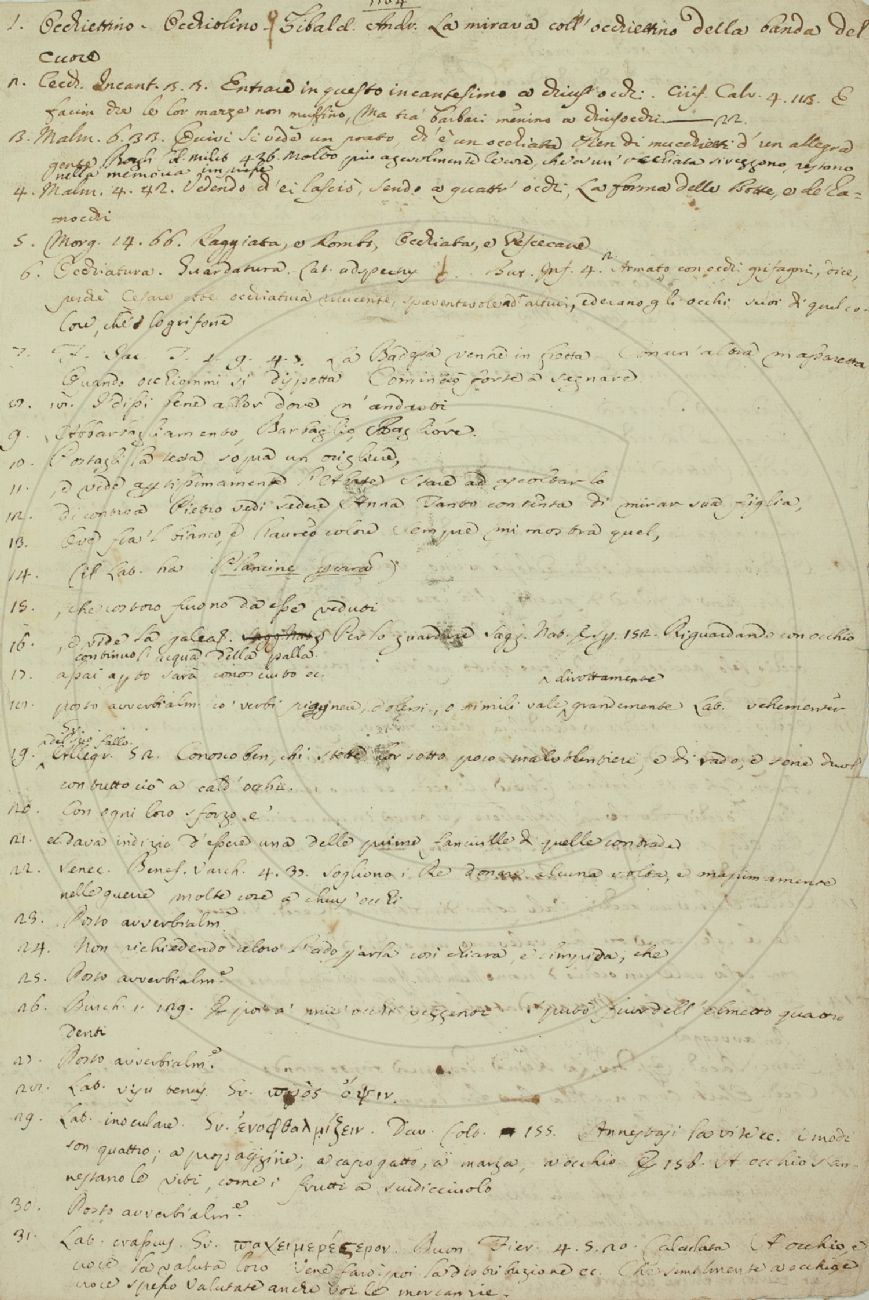 1. Occhiettino. Occhiolino. Tibald. Andr. La mirava coll'occhiettino della banda del
cuore
2. Cecch. Incant. 3. 3. Entrare in questo incantesimo a chius' occhi. Ciriff. Calv. 4. 113. E
facciu che le lor marze non muffino, Ma tra' barbari menino a chiusocchi 22.
3. Malm. 6. 33. Quivi si vede un prato, ch'è un'occhiata Pien di mucchietti d'un'allegra
gente
nella memoria
4. Malm. 4. 42. Vedendo ch'ei lasciò, sendo a quattr'occhi, La forma delle Botte, e de' Ra-
nocchi
5. Morg. 14. 66. Raggiata, e Rombo, Occhiata, e Pescecane
6. Occhiatura. Guardatura. Lat. adspectus. But. Inf. 4. Armato con occhi grifagni, cioè,
perchè Cesare ebbe occhiatura rilucente, spaventevole ad altrui, ed erano gli occhi suoi di quel co-
lore, che lo grifone
7. F. Jac. T. 2. 9. 43. La Badessa venne in fretta Con un'altra
Quando occhiommi si dispetta Cominciò forte a segnare
8. Vidi bene allor dove n'andasti
9. Abbarbagliamento, Barbaglio, Bagliore.
10. Postagli la testa sopra un origliere,
11. , e vide apertissimamente l'Abate stare ad ascoltarlo
12. Di contra Pietro vedi sedere Anna Tanto contenta di mirar sua figlia,
13. Ove fra 'l bianco, e l'aureo colore Sempre mi mostra quel,
14. (il Lat. ha )
15. , che costoro furono da esse veduti
16. , e vide la galea. Per lo guardare Sagg. Nat. Esp. 152. Riguardando con occhio
continuo l'acqua della palla
17. assai appo sarà conosciuto ec. ^ dirottamente
18. posto avverbialm. co' verbi piagnere, dolersi, o simili vale, grandemente Lat. vehementer
del suo fallo
19. Allegr. 52. Conosco ben, chi stette lor sotto poco malvolentieri, e di rado, e sene duol
con tutto ciò a cald'occhi.
20. Con ogni loro sforzo, e'
21. e dava indizio d'essere una delle prime fanciulle di quelle contrade
22. Senec. Benef. Varch. 4. 37. Sogliono i Re donare alcuna volta, e massimamente
nelle guerre molte cose a chius'occhi
23. Posto avverbialm.
24. Non richiedendo coloro l'andò parlà così chiara, e limpida, che
25. Posto avverbialm.e
26. Burch. 1. 129. E poi a' miei occhi veggenti Sputò fuor dell'elmetto quattro
denti
27. Posto avverbialm.e
28. Lat. visu tenus. Gr. πρὸς ὄψιν.
29. Lat. inoculare. Gr. ἐνοφθαλμίζειν. Dav. Colt. 155. Annestasi la vite ec. i modi
son quattro; a propaggine; a capogatto, a marza, a occhio. E 156. A occhio s'an-
nestano le viti, come i frutti a scudicciuolo
30. Posto avverbialm.e
31. Lat. crassius. Gr. παχυμερέστερον. Buon. Fier. 4. 5. 20. Calculata A occhio, e
croce la valuta loro Vene farò poi la distribuzione ec. Che similmente a occhi e
croce spesso valutate anche voi le mercanzie.